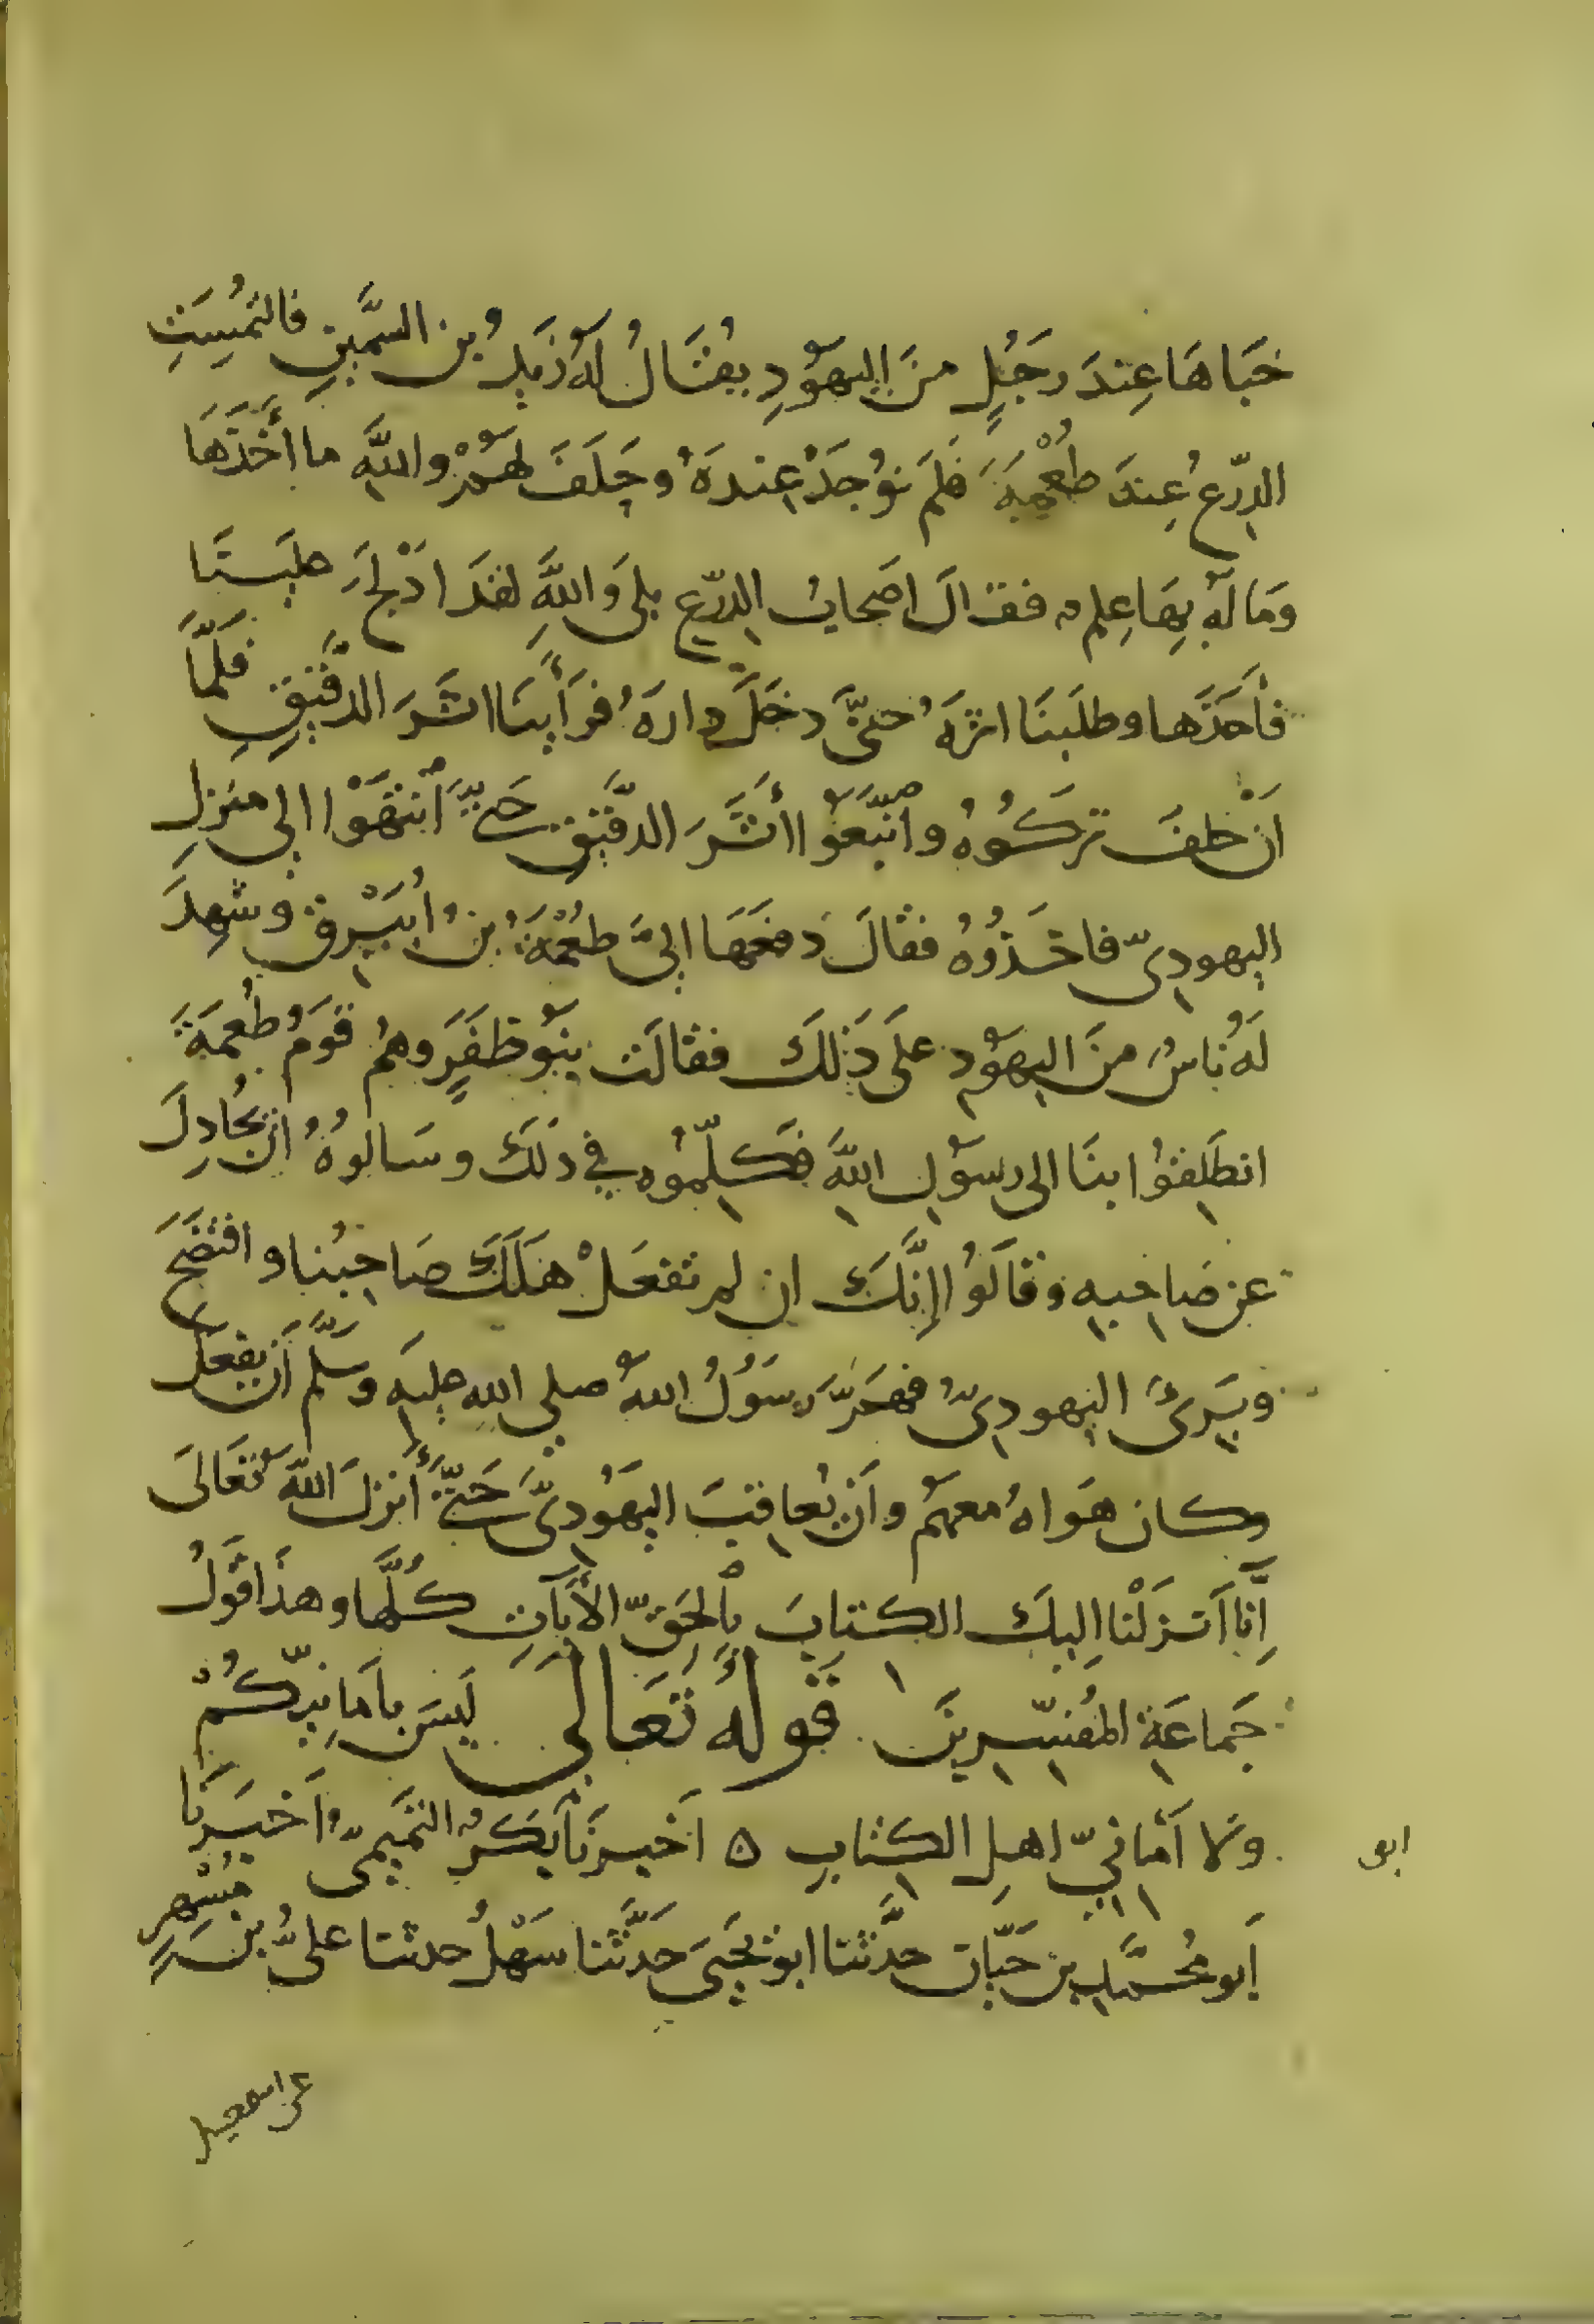 خَبَاهَا عِندَ رَجُلٍ مِنَ اليَهُودِ يقُالُ لهُ زَيدُ بن السَّمِينِ فالتُمِسَتِ
الدِّرعُ عِندَ طُعْمَةَ فَلَم تُوجَدْ عِندَهُ وحَلَفَ لَهُمْ واللَّهِ ما أَخَذَهَا
ومَا لَهُ بِهَا عِلم فقال اصَحابُ الدِّرعِ بلَى وَاللَّهِ لقَدَ ادْلَجَ علَيَنَا
فأَخَذَها وطلَبنَا اثرَهُ حتىَّ دخَلَ دارَهُ فَرَأَينَا اثَرَ الدَّقيِقِ فلَمّاَ
اَنْ حَلفَ تَركَوُهُ واتَّبَعوُا أَثَرَ الدقَّيقِ حَتىَّ أنتهَوْا الى منَزِلِ
اليهودِىّ فاخَذُوُهُ فقالَ دَفعَهَا الىَّ طُعْمَةُ بنُ أُبَيْرِقٍ وشهِدَ
لَهُ ناسُ مِنَ اليهَودِ علَى ذَلِكَ فقالَت بنَوُ ظَفَرٍ وهُم قَومُ طُعمَةَ
انطَلِقوُا بنَا الى رسوُلِ اللَّهِ فكَلِّموُه في ذلَكَ وسَالوُهُ ان يُجادِلَ
عن صَاحِبهِ وقَالَوُا إِنَّكَ ان لم تفعَلْ هَلَكَ صَاحِبُنا وافتَضَحَ
وبَرِىَ اليهودِىُّ فهَمَّ رسَوُلُ اللهِ صلى اللهِ عليَهِ وسَلَّم أَن يفعَلَ
وكان هَواهُ معهَمُ وأَن يُعاقِبَ اليهَوُدِىَّ حَتىَّ أَنزلَ اللَّهُ تعَالَى
إِنّاَ اَنزَلْنا اِليكَ الكتابَ باِلحَقّ الأَيَاتِ كُلَّها وهذَا قَولُ
جَماعَةِ المُفسّرِينَ قَولُهُ تَعَالَى لَيسَ باَمَانِيّكُمْ
ولا أَمَانِيّ اهلِ الكتابِ ٥ اَخَبرنَا بَكرُ التَمِيمىُّ اَخبَرَنا
ابو
أَبو مُحَمَّدِ بن حَيّان حدَّثنا ابو يحَيىَ حَدَّثنا سَهْلُ حدثنا علىُّ بن مُسْهِرٍ
عن اسمعيل